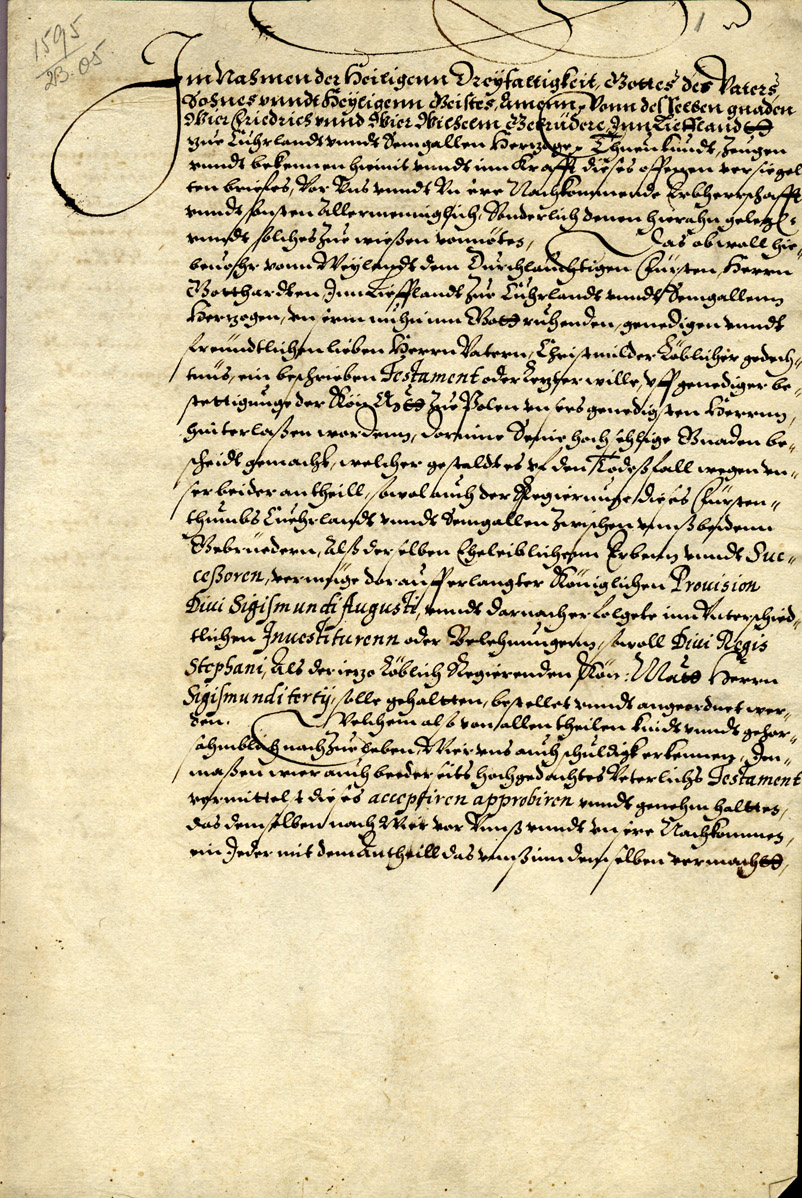 1595
23.05
1
Im Nahmen der Heiligenn Dreyfaltigkeit, Gottes des Vaters
Sohnes vnndt Heyligenn Geistes, Amenn, Vonn desselben gnaden
Wier Friedrich vnnd Wier Wilhelm Gebrüdere, Inn Liefflandt
zue Cuhrlandt vnndt Semgallen Hertzoge, Thuen kundt, zeugen
vnndt bekennen hiemit vnndt inn Krafft dieses offenen versiegel
ten briefes, Vor Vns vnndt Vnsere Nachkommende Erbherrschafft
vnndt sonsten Allermenniglich, Sonderlich denen hieran gelegen
vnndt solches zue wießen vonnöten, Das obwoll hie-
beuohr vonn Weylandt dem Durchlauchtigen Fürsten, Herrn
Gotthardten, Inn Liefflandt zue Cuhrlandt vnndt Semgallenn
Herzogen, vnserm nuhn inn Gott ruhenden, genedigen vnndt
freundtlichen lieben Herrn Vatern, Christmilder Löblicher gedech-
tnüs, ein beschrieben Testament oder letzter wille, vff genediger be-
stettigunge der Kön: Matt zue Polen vnsers genedigsten Herrnn,
hinterlaßen wordenn, darinne Seine hochsehlige Gnaden be-
scheidt gemacht, welcher gestaldt es vf den Todeßfall wegen vn-
ser beider antheill, sowol auch der Regierunge dieses Fürsten-
thumbs Cuehrlandt vnndt Semgallen zwischen vnnß beidenn
Gebrüedern, Alß derselben Eheleiblichenn Erbenn vnndt Suc-
ceßoren, vermüge darauff erlangter Königlichen Prouision
Diui Sigismundi Augusti, vnndt darnach erfolgete inn Vnterschied-
tlichen Inuestiturenn oder Belehnungenn, sowoll Diui Regis
Stephani, Als der ietzo Löblich Regierenden Kön: Matt Herrn
Sigismundi tertij, solle gehaltten, bestellet vnndt angeordnet wer-
den. Welchem als von allen theilen kindt vnndt gehor-
sahmblich nach zue leben, Wier vns auch schuldigk erkennen, Den-
maßen wier auch beederseits hochgedachtes Veterlichs Testament
vermittelst dieses acceptiren approbiren vnndt genehm haltten,
das demselben nach Wir vor Vnnß vnndt vnsere Nachkommen,
ein Jeder mit dem Antheill das vnnß inn demselben vermacht,